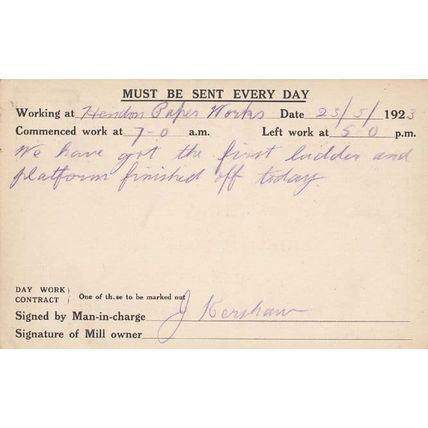 MUST BE SENT EVERY DAY
Working at Hendon Paper Works Date 23/5/1923
Commenced work at 7-0 a.m. Left work at 5 0 p.m.
We have got the first ladder and
platform finished off today.
DAY WORK
CONTRACT } One of these to be marked out
Signed by Man-in-charge J Kershaw
Signature of Mill owner